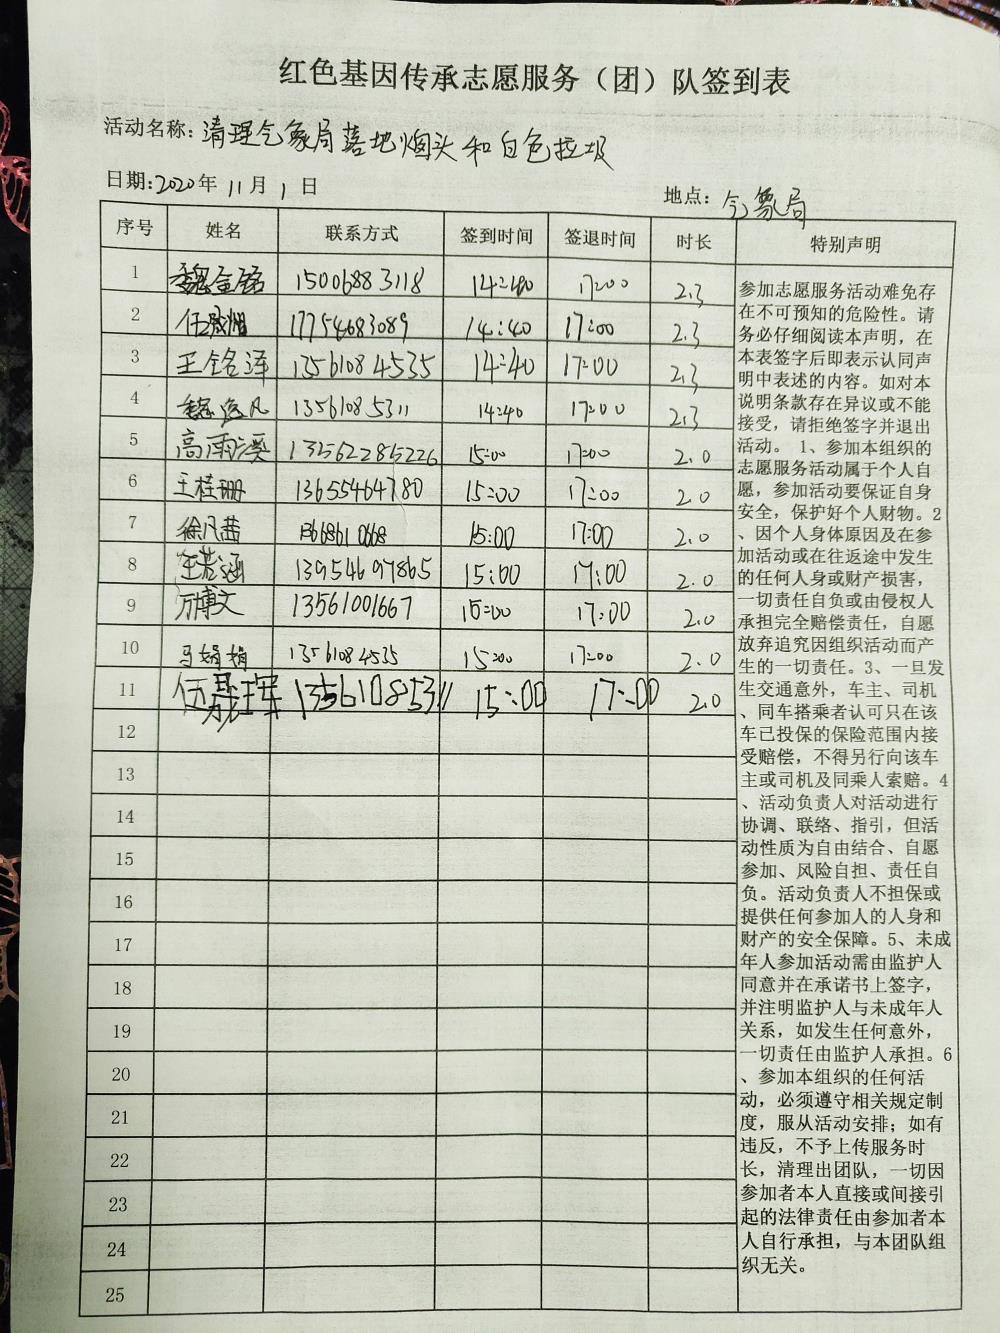 红色基因传承志愿服务（团）队签到表
活动名称：清理气象局落地烟头和白色垃圾
日期：2020年 11月 1 日
地点：气象局
序号 姓名 联系方式 签到时间 签退时间 时长 特别声明
1 15006883118 14:40 17:00 2.3
2 17754683089 14:40 17:00 2.3
3 王铭泽 13561084535 14:40 17:00 2.3
4 13561085311 14:40 17:00 2.3
5 高雨溪 15:00 17:00 2.0
6 王桂珊 13655464780 15:00 17:00 2.0
7 徐凡茜 15:00 17:00 2.0
8 王若涵 13954697865 15:00 17:00 2.0
9 万博文 13561001667 15:00 17:00 2.0
10 马娟娟 13561084535 15:00 17:00 2.0
11 13561085311 15:00 17:00 2.0
12
13
14
15
16
17
18
19
20
21
22
23
24
25
参加志愿服务活动难免存
在不可预知的危险性。请
务必仔细阅读本声明，在
本表签字后即表示认同声
明中表述的内容。如对本
说明条款存在异议或不能
接受，请拒绝签字并退出
活动。 1、参加本组织的
志愿服务活动属于个人自
愿，参加活动要保证自身
安全，保护好个人财物。2
、因个人身体原因及在参
加活动或在往返途中发生
的任何人身或财产损害，
一切责任自负或由侵权人
承担完全赔偿责任，自愿
放弃追究因组织活动而产
生的一切责任。3、一旦发
生交通意外，车主、司机
、同车搭乘者认可只在该
车已投保的保险范围内接
受赔偿，不得另行向该车
主或司机及同乘人索赔。4
、活动负责人对活动进行
协调、联络、指引，但活
动性质为自由结合、自愿
参加、风险自担、责任自
负。活动负责人不担保或
提供任何参加人的人身和
财产的安全保障。5、未成
年人参加活动需由监护人
同意并在承诺书上签字，
并注明监护人与未成年人
关系，如发生任何意外，
一切责任由监护人承担。6
、参加本组织的任何活
动，必须遵守相关规定制
度，服从活动安排；如有
违反，不予上传服务时
长，清理出团队，一切因
参加者本人直接或间接引
起的法律责任由参加者本
人自行承担，与本团队组
织无关。